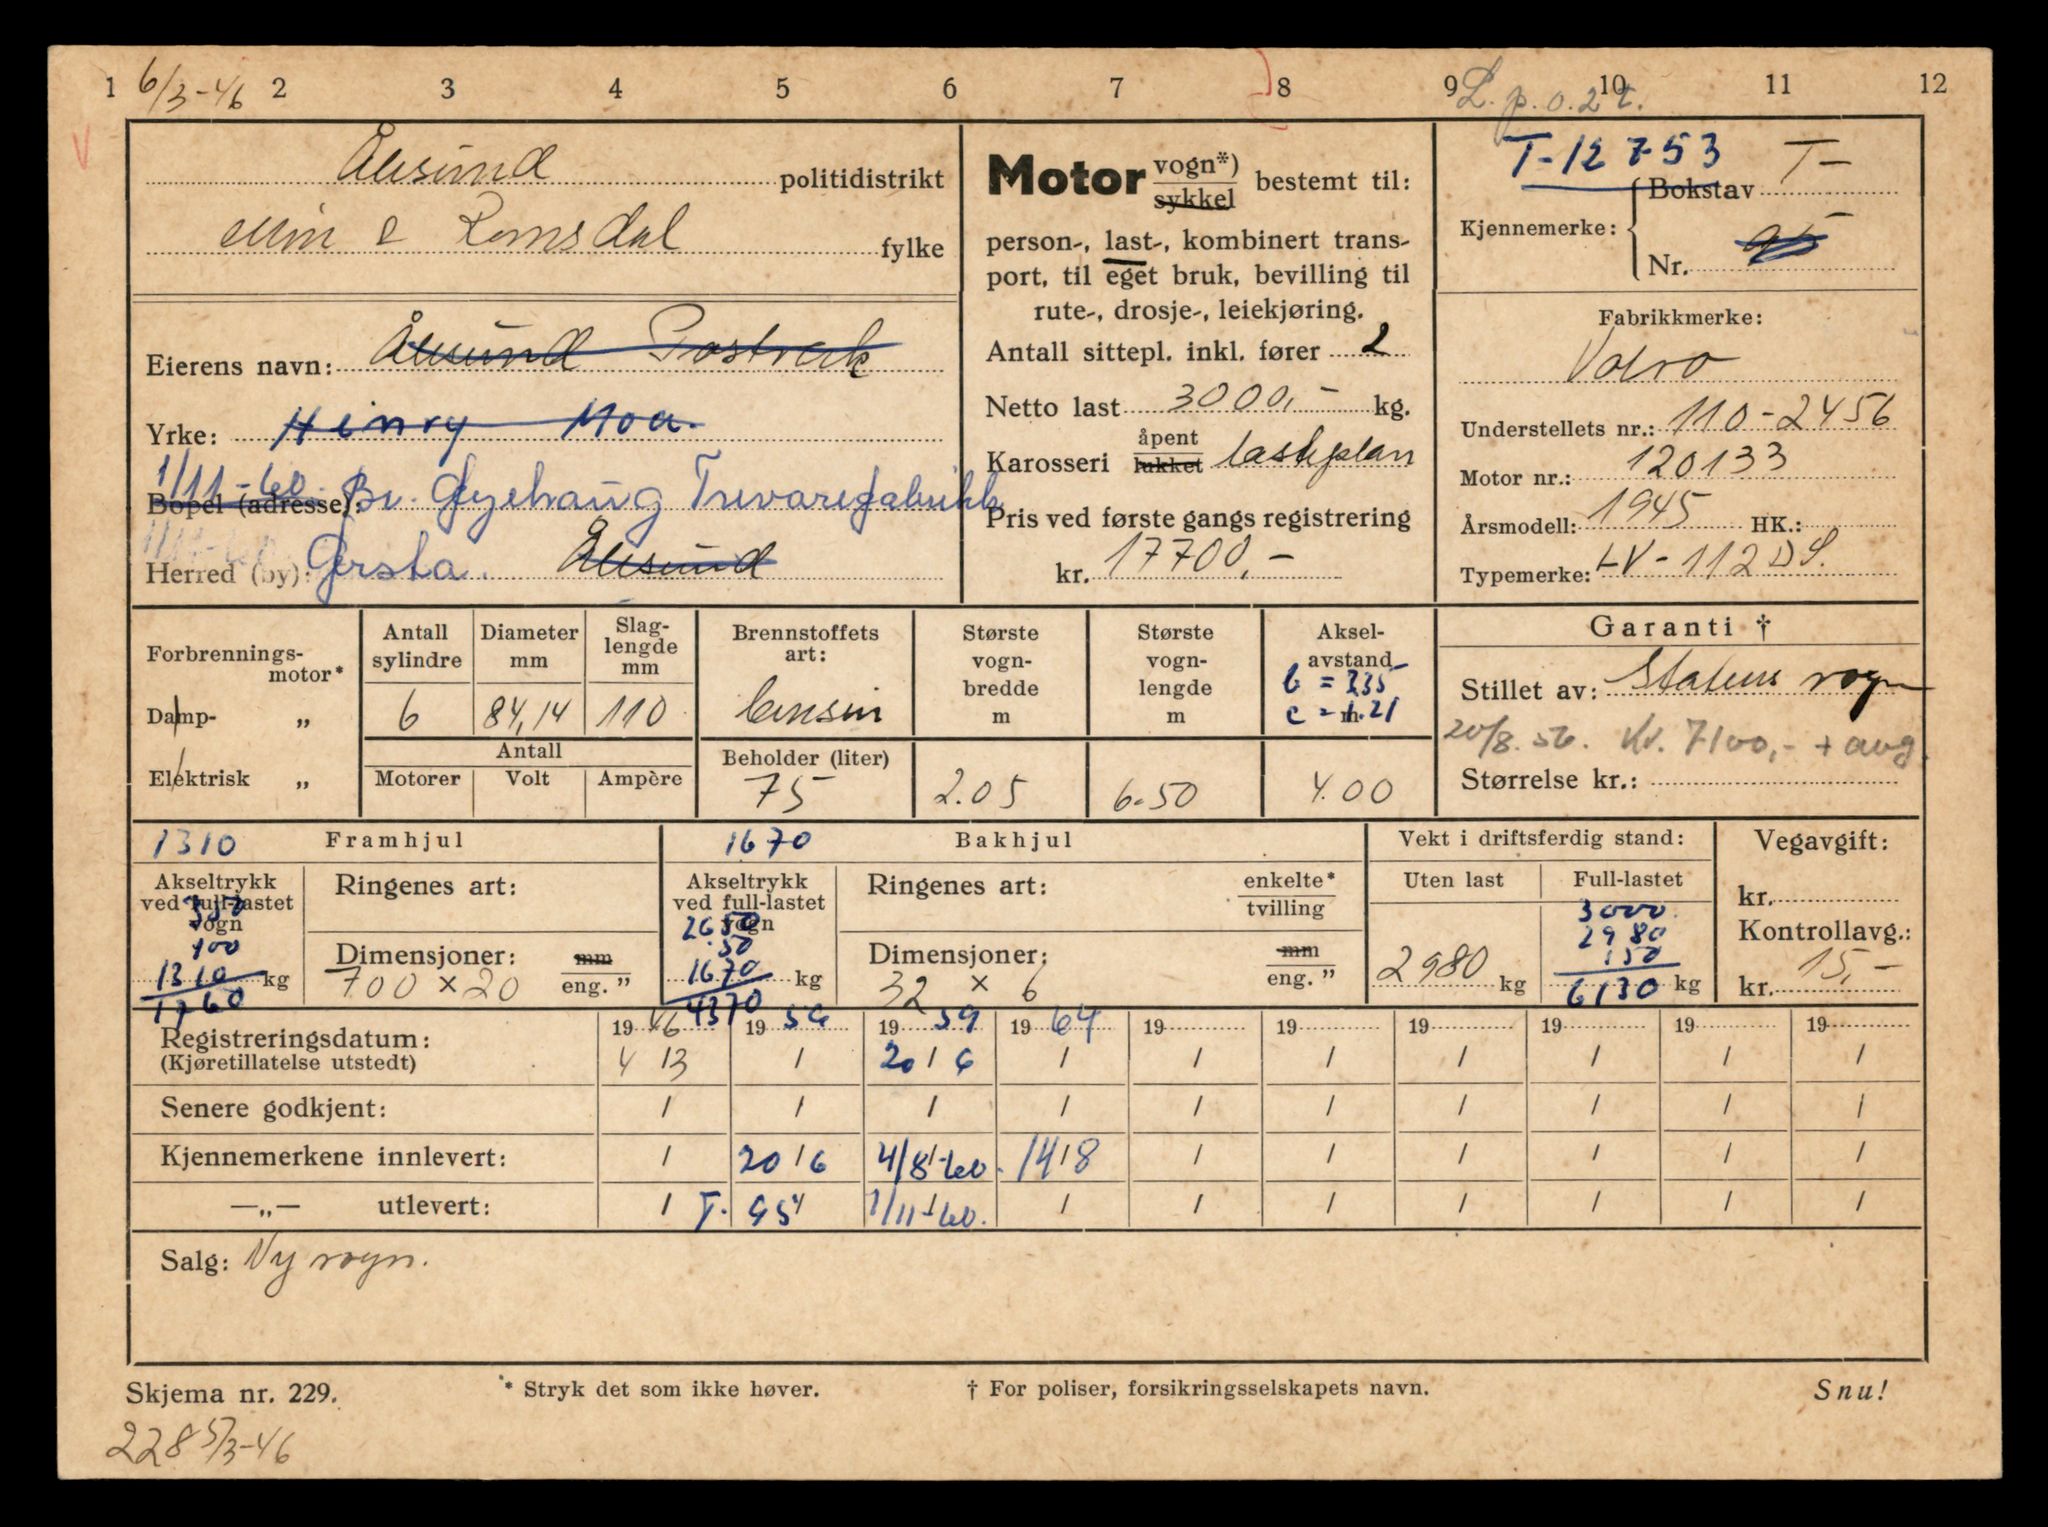 1 6/3-46 2 3 4 5 6 7 8 9 10 11 12
L. p. o. 2 t.
Ålesund politidistrikt
Møre & Romsdal fylke
Eierens navn: Ålesund Postverk
Yrke: Henry Moa.
1/11-60.
Bopel (adresse): Br. Øyehaug Trevarefabrikk
Herred (by): Ørsta. Ålesund
Motor vogn*) sykkel bestemt til:
person-, last-, kombinert trans-
port, til eget bruk, bevilling til
rute-, drosje-, leiekjøring.
Antall sittepl. inkl. fører 2
Netto last 3000,- kg.
Karosseri åpent lukket lasteplan
Pris ved første gangs registrering
kr. 17700,-
T-12753
Kjennemerke: Bokstav T-
Nr. 95
Fabrikkmerke:
Volvo
Understellets nr.: 110-2456
Motor nr.: 120133
Årsmodell: 1945 HK.:
Typemerke: LV-112 DS.
Forbrennings-
motor*
Damp- „
Elektrisk „
Antall
sylindre
6
Diameter
mm
84,14
Slag-
lengde
mm
110
Antall
Motorer Volt Ampère
Brennstoffets
art:
bensin
Beholder (liter)
75
Største
vogn-
bredde
m
2.05
Største
vogn-
lengde
m
6.50
Aksel-
avstand
m
4.00
Garanti †
Stillet av: Statens vogn
20/8.56. Kr. 7100,- + avg.
Størrelse kr.:
1310 Framhjul
Akseltrykk
ved full-lastet
vogn
350
100
1310 kg
1760
Ringenes art:
Dimensjoner: mm eng. ”
700 × 20
1670 Bakhjul
Akseltrykk
ved full-lastet
vogn
2650
50
1670 kg
4370
Ringenes art: enkelte* tvilling
Dimensjoner: mm eng. ”
32 × 6
Vekt i driftsferdig stand:
Uten last Full-lastet
2980 kg
3000
2980
150
6130 kg
Vegavgift:
kr.
Kontrollavg.:
kr. 15,-
Registreringsdatum: 1946 1956 1959 1964 19 19 19 19 19 19
(Kjøretillatelse utstedt) 4/3 / 20/6 / / / / / / /
Senere godkjent: / / / / / / / / / /
Kjennemerkene innlevert: / 20/6 4/8-60. 14/8 / / / / / /
—„— utlevert: / T. 954 1/11-60. / / / / / / /
Salg: Ny vogn.
Skjema nr. 229. * Stryk det som ikke høver. † For poliser, forsikringsselskapets navn. Snu!
228 5/3-46